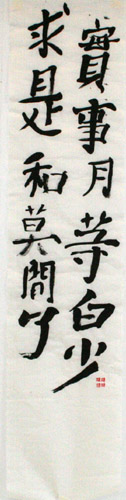 實事月等白少
求是和莫間了